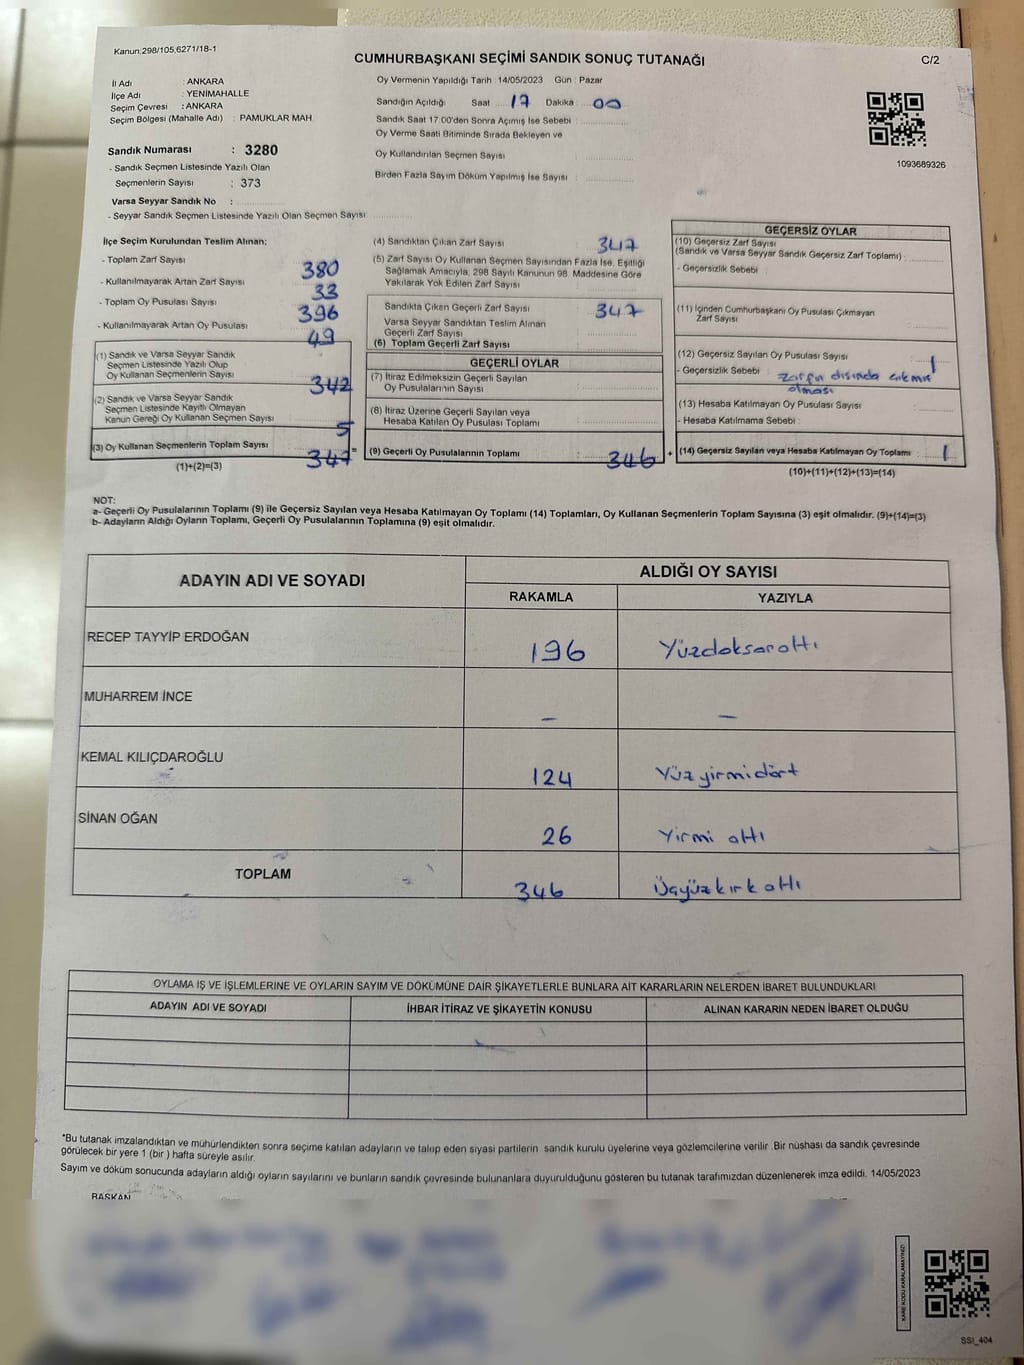 Kanun,298/105,6271/18-1
CUMHURBAŞKANI SEÇİMİ SANDIK SONUÇ TUTANAĞI
C/2
İl Adı : ANKARA
İlçe Adı : YENİMAHALLE
Seçim Çevresi : ANKARA
Seçim Bölgesi (Mahalle Adı) : PAMUKLAR MAH.
Oy Vermenin Yapıldığı Tarih 14/05/2023 Gün : Pazar
Sandığın Açıldığı Saat 17 Dakika 00
Sandık Saat 17.00'den Sonra Açımış İse Sebebi :
Oy Verme Saati Bitiminde Sırada Bekleyen ve
Oy Kullandırılan Seçmen Sayısı :
Birden Fazla Sayım Döküm Yapılmış İse Sayısı :
1093689326
Sandık Numarası : 3280
- Sandık Seçmen Listesinde Yazılı Olan
Seçmenlerin Sayısı : 373
Varsa Seyyar Sandık No :
- Seyyar Sandık Seçmen Listesinde Yazılı Olan Seçmen Sayısı :
İlçe Seçim Kurulundan Teslim Alınan;
- Toplam Zarf Sayısı 380
- Kullanılmayarak Artan Zarf Sayısı 33
- Toplam Oy Pusulası Sayısı 396
- Kullanılmayarak Artan Oy Pusulası 49
(1) Sandık ve Varsa Seyyar Sandık
Seçmen Listesinde Yazılı Olup
Oy Kullanan Seçmenlerin Sayısı 342
(2) Sandık ve Varsa Seyyar Sandık
Seçmen Listesinde Kayıtlı Olmayan
Kanun Gereği Oy Kullanan Seçmen Sayısı 5
(3) Oy Kullanan Seçmenlerin Toplam Sayısı 347 =
(1)+(2)=(3)
(4) Sandıktan Çıkan Zarf Sayısı 347
(5) Zarf Sayısı Oy Kullanan Seçmen Sayısından Fazla İse, Eşitliği
Sağlamak Amacıyla, 298 Sayılı Kanunun 98. Maddesine Göre
Yakılarak Yok Edilen Zarf Sayısı :
Sandıkta Çıkan Geçerli Zarf Sayısı : 347
Varsa Seyyar Sandıktan Teslim Alınan
Geçerli Zarf Sayısı :
(6) Toplam Geçerli Zarf Sayısı :
GEÇERLİ OYLAR
(7) İtiraz Edilmeksizin Geçerli Sayılan
Oy Pusulalarının Sayısı :
(8) İtiraz Üzerine Geçerli Sayılan veya
Hesaba Katılan Oy Pusulası Toplamı :
(9) Geçerli Oy Pusulalarının Toplamı : 346 +
GEÇERSİZ OYLAR
(10) Geçersiz Zarf Sayısı
(Sandık ve Varsa Seyyar Sandık Geçersiz Zarf Toplamı) :
- Geçersizlik Sebebi :
(11) İçinden Cumhurbaşkanı Oy Pusulası Çıkmayan
Zarf Sayısı :
(12) Geçersiz Sayılan Oy Pusulası Sayısı : 1
- Geçersizlik Sebebi : zarfın dışında çıkmış
olması
(13) Hesaba Katılmayan Oy Pusulası Sayısı :
- Hesaba Katılmama Sebebi :
(14) Geçersiz Sayılan veya Hesaba Katılmayan Oy Toplamı : 1
(10)+(11)+(12)+(13)=(14)
NOT:
a- Geçerli Oy Pusulalarının Toplamı (9) ile Geçersiz Sayılan veya Hesaba Katılmayan Oy Toplamı (14) Toplamları, Oy Kullanan Seçmenlerin Toplam Sayısına (3) eşit olmalıdır. (9)+(14)=(3)
b- Adayların Aldığı Oyların Toplamı, Geçerli Oy Pusulalarının Toplamına (9) eşit olmalıdır.
ADAYIN ADI VE SOYADI
ALDIĞI OY SAYISI
RAKAMLA YAZIYLA
RECEP TAYYİP ERDOĞAN 196 Yüzdoksanaltı
MUHARREM İNCE - -
KEMAL KILIÇDAROĞLU 124 Yüzyirmidört
SİNAN OĞAN 26 Yirmi altı
TOPLAM 346 Üçyüzkırkaltı
OYLAMA İŞ VE İŞLEMLERINE VE OYLARIN SAYIM VE DÖKÜMÜNE DAİR ŞİKAYETLERLE BUNLARA AİT KARARLARIN NELERDEN İBARET BULUNDUKLARI
ADAYIN ADI VE SOYADI İHBAR İTİRAZ VE ŞİKAYETİN KONUSU ALINAN KARARIN NEDEN İBARET OLDUĞU
*Bu tutanak imzalandıktan ve mühürlendikten sonra seçime katılan adayların ve talep eden siyasi partilerin sandık kurulu üyelerine veya gözlemcilerine verilir. Bir nüshası da sandık çevresinde
görülecek bir yere 1 (bir ) hafta süreyle asılır.
Sayım ve döküm sonucunda adayların aldığı oyların sayılarını ve bunların sandık çevresinde bulunanlara duyurulduğunu gösteren bu tutanak tarafımızdan düzenlenerek imza edildi. 14/05/2023
BAŞKAN
KARE KODU KARALAMAYINIZ!
SSI_404